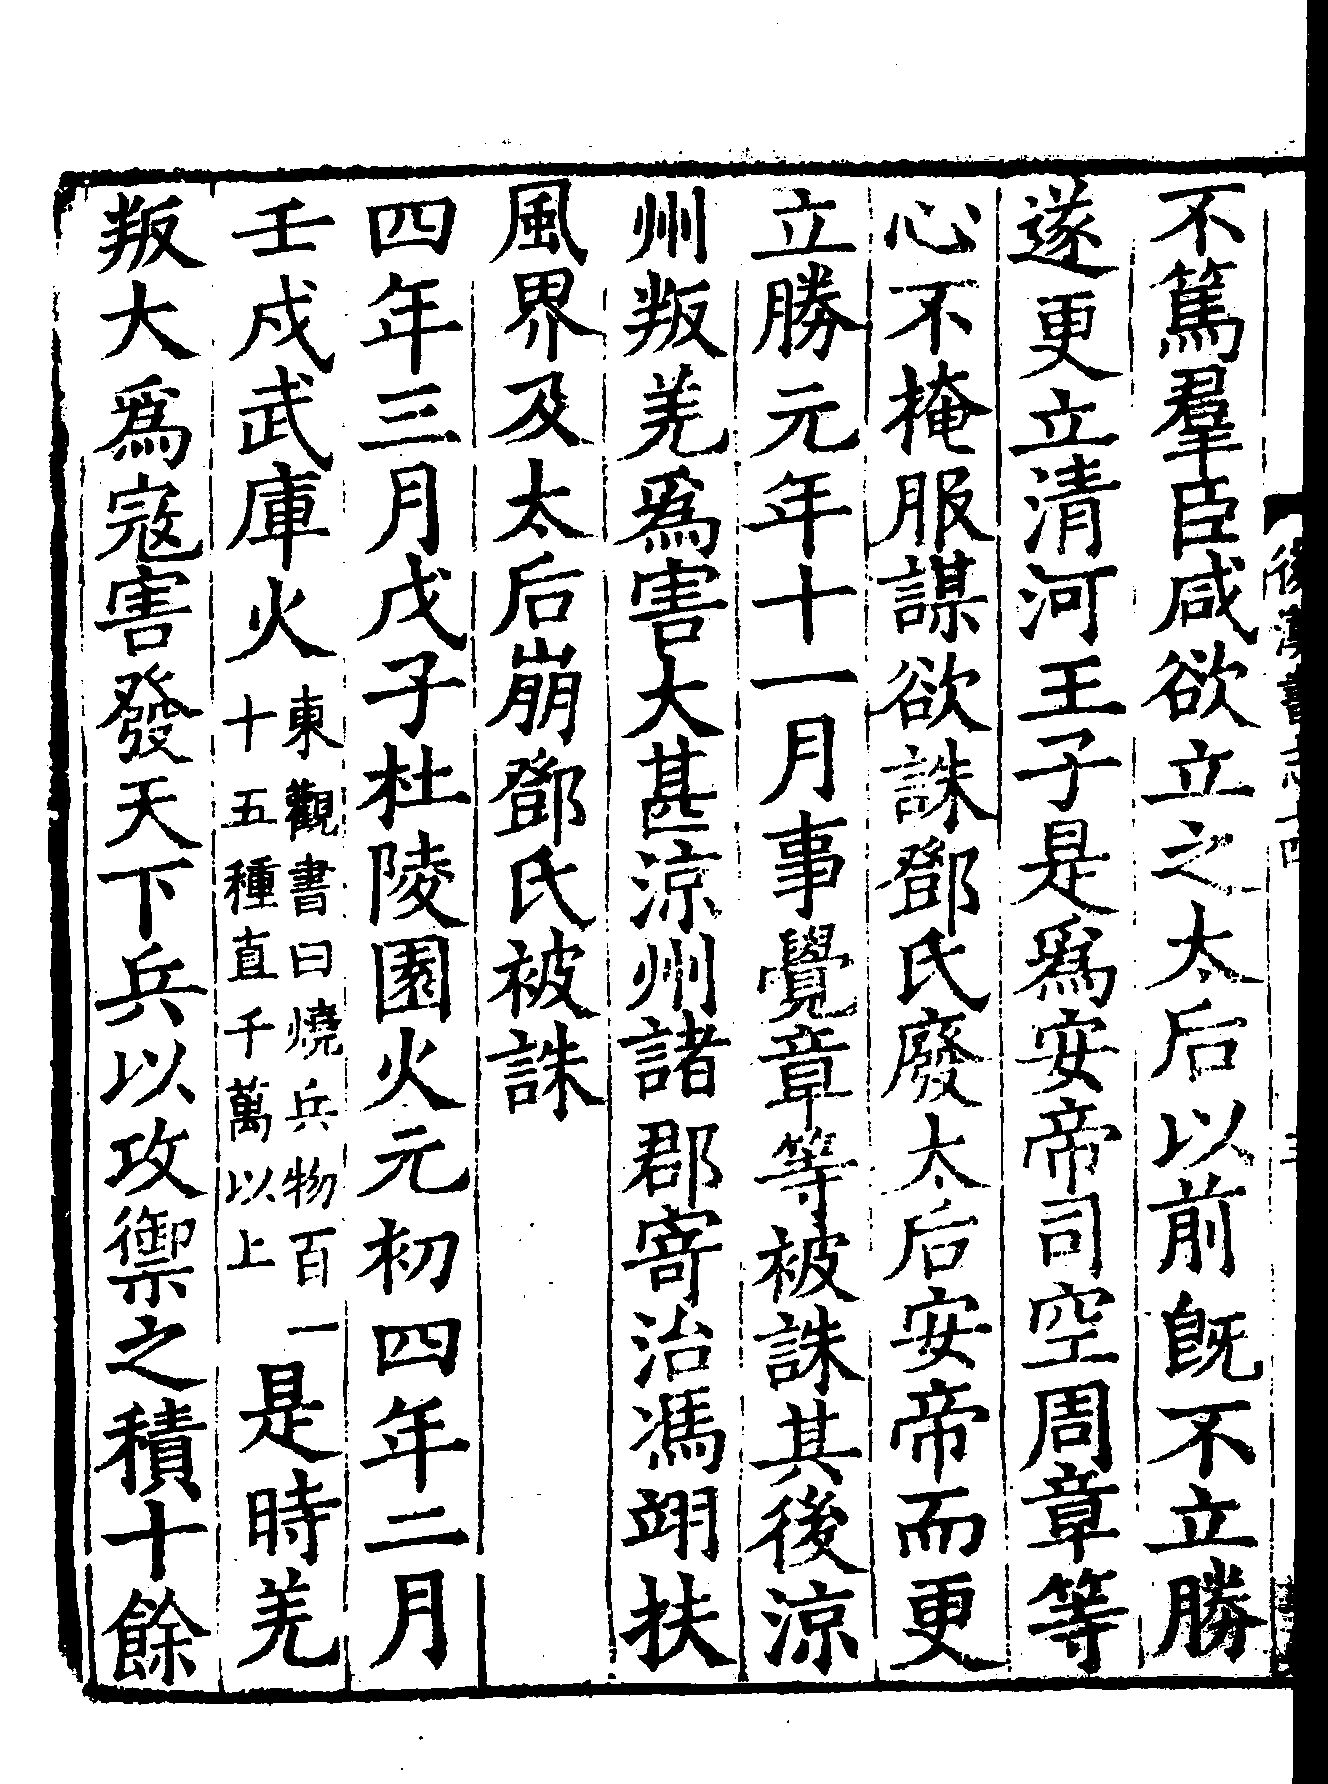 不篤羣臣咸欲立之太后以前旣不立勝
遂更立清河王子是爲安帝司空周章等
心不掩服謀欲誅鄧氏廢太后安帝而更
立勝元年十一月事覺章等被誅其後涼
州叛羌爲害大甚涼州諸郡寄治馮翊扶
風界及太后崩鄧氏被誅
四年三月戊子杜陵園火元初四年二月
壬戌武庫火
東觀書曰燒兵物百一
十五種直千萬以上
是時羌
叛大爲寇害發天下兵以攻禦之積十餘